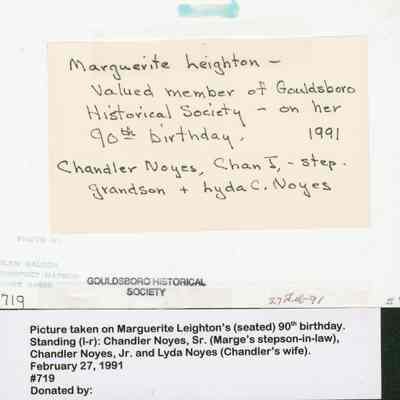 Marguerite Leighton -
Valued member of Gouldsboro
Historical Society - on her
90th birthday. 1991
Chandler Noyes, Chan J, - step.
grandson + Lyda C. Noyes
PHOTO BY
GOULDSBORO HISTORICAL
SOCIETY
27 Feb-91
719
Picture taken on Marguerite Leighton's (seated) 90th birthday.
Standing (l-r): Chandler Noyes, Sr. (Marge's stepson-in-law),
Chandler Noyes, Jr. and Lyda Noyes (Chandler's wife).
February 27, 1991
#719
Donated by: